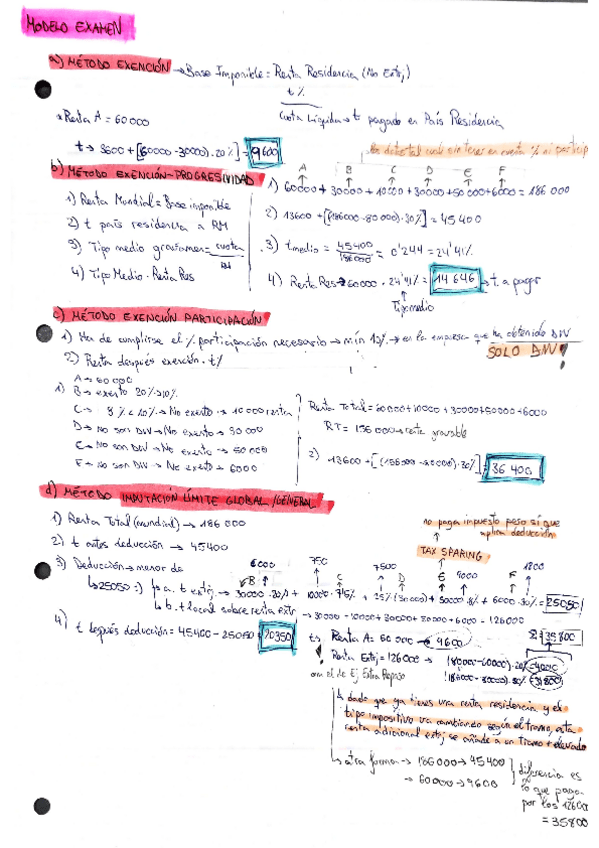 MODELO EXAMEN
a) MÉTODO EXENCIÓN → Base Imponible = Renta Residencia (No Extj)
t %
Cuota Líquida → t pagado en País Residencia
Renta A = 60000
t → 3600 + [(60000 - 30000) · 20%] = 9600
b) MÉTODO EXENCIÓN-PROGRESIVIDAD
A B C D E F
1) Renta Mundial = Base imponible
2) t país residencia a RM
3) Tipo medio gravamen = cuota / RM
4) Tipo Medio · Renta Res
1) 60000 + 30000 + 10000 + 30000 + 50000 + 6000 = 186 000
2) 13600 + [(186000 - 80000) · 30%] = 45400
3) tmedio = 45400 / 186000 = 0'244 = 24'41%
4) Renta Res → 60000 · 24'41% = 14 646 → t. a pagar
Tipo medio
c) MÉTODO EXENCIÓN PARTICIPACIÓN
1) Ha de cumplirse el % participación necesario → mín 10% → en la empresa que ha obtenido DIV
SOLO DIV!
2) Renta después exención · t%
A → 60 000
1) B → exento 20% > 10%
C → 8% < 10% → No exento → 10000 renta
D → no son DIV → No exento → 30 000
E → No son DIV → No exento → 50 000
F → no son DIV → No exento → 6000
Renta Total = 60000 + 10000 + 30000 + 50000 + 6000
RT = 156000 → renta gravable
2) 13600 + [(156000 - 80000) · 30%] = 36 400
d) MÉTODO IMPUTACIÓN LÍMITE GLOBAL/GENERAL
1) Renta Total (mundial) → 186 000
2) t antes deducción → 45400
no paga impuesto pero sí que
aplica deducción
TAX SPARING
3) Deducción → menor de
6000 750 7500 9000 1800
B C D E F
→ 25050 :) a. t extj → 30000 · 20% + 10000 · 7'5% + 25% (30000) + 50000 · 18% + 6000 · 30% = 25050
b. t local sobre renta extr → 30000 + 10000 + 30000 + 50000 + 6000 = 126000
4) t después deducción = 45400 - 25050 = 20350
Renta A = 60 000 → 9600
Σ = 35800
Renta Extj = 126000 → (80000 - 60000) · 20% = 4000
(186000 - 80000) · 30% = 31800
dado que ya tienes una renta residencia y el
tipo impositivo va cambiando según el tramo, esta
renta adicional extj se añade a un tramo + elevado
otra forma → 186000 → 45400
→ 60000 → 9600
diferencia es
lo que paga
por los 126000
= 35800